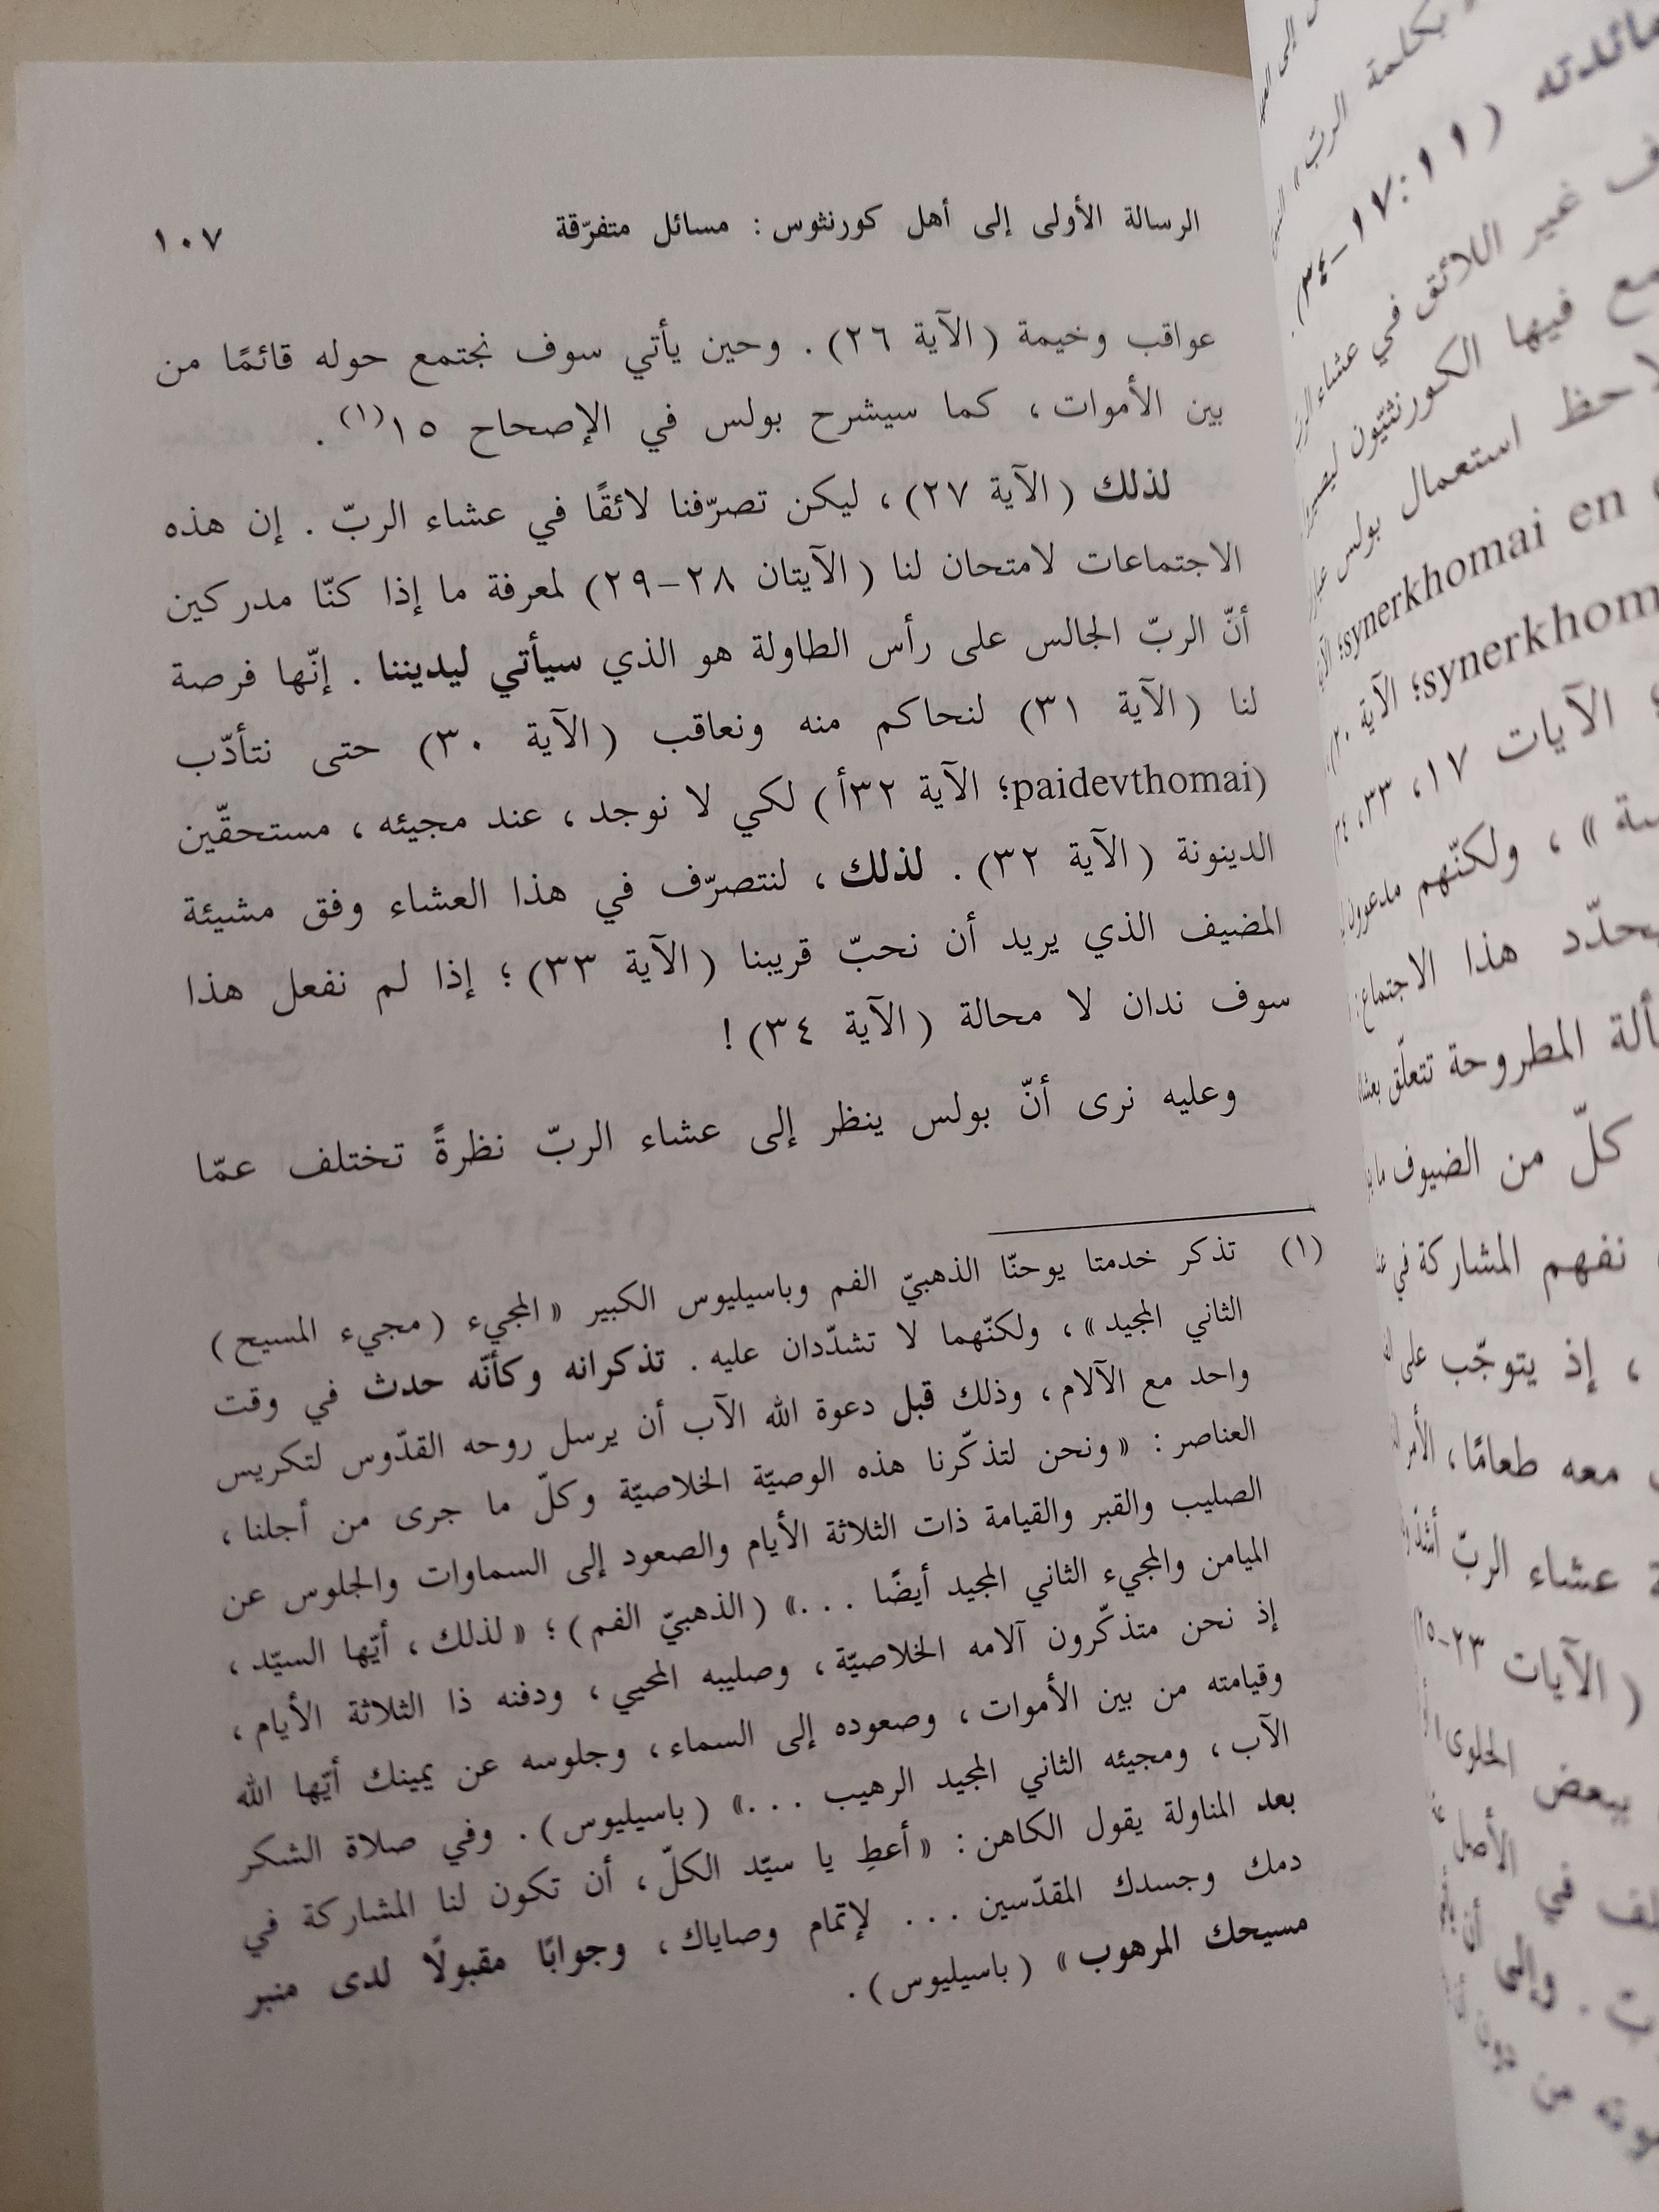 الرسالة الأولى إلى أهل كورنثوس : مسائل متفرّقة ١٠٧
عواقب وخيمة (الآية ٢٦). وحين يأتي سوف نجتمع حوله قائمًا من
بين الأموات، كما سيشرح بولس في الإصحاح ١٥(١).
لذلك (الآية ٢٧)، ليكن تصرّفنا لائقًا في عشاء الربّ. إن هذه
الاجتماعات لامتحان لنا (الآيتان ٢٨-٢٩) لمعرفة ما إذا كنّا مدركين
أنّ الربّ الجالس على رأس الطاولة هو الذي سيأتي ليديننا. إنّها فرصة
لنا (الآية ٣١) لنحاكم منه ونعاقب (الآية ٣٠) حتى نتأدّب
(paidevthomai؛ الآية ٣٢أ) لكي لا نوجد، عند مجيئه، مستحقّين
الدينونة (الآية ٣٢). لذلك، لنتصرّف في هذا العشاء وفق مشيئة
المضيف الذي يريد أن نحبّ قريبنا (الآية ٣٣)؛ إذا لم نفعل هذا
سوف ندان لا محالة (الآية ٣٤)!
وعليه نرى أنّ بولس ينظر إلى عشاء الربّ نظرةً تختلف عمّا
(١) تذكر خدمتا يوحنّا الذهبيّ الفم وباسيليوس الكبير «المجيء (مجيء المسيح)
الثاني المجيد»، ولكنّهما لا تشدّدان عليه. تذكرانه وكأنّه حدث في وقت
واحد مع الآلام، وذلك قبل دعوة الله الآب أن يرسل روحه القدّوس لتكريس
العناصر: «ونحن لتذكّرنا هذه الوصيّة الخلاصيّة وكلّ ما جرى من أجلنا،
الصليب والقبر والقيامة ذات الثلاثة الأيام والصعود إلى السماوات والجلوس عن
الميامن والمجيء الثاني المجيد أيضًا ...» (الذهبيّ الفم)؛ «لذلك، أيّها السيّد،
إذ نحن متذكّرون آلامه الخلاصيّة، وصليبه المحيي، ودفنه ذا الثلاثة الأيام،
وقيامته من بين الأموات، وصعوده إلى السماء، وجلوسه عن يمينك أيّها الله
الآب، ومجيئه الثاني المجيد الرهيب ...» (باسيليوس). وفي صلاة الشكر
بعد المناولة يقول الكاهن: «أعطِ يا سيّد الكلّ، أن تكون لنا المشاركة في
دمك وجسدك المقدّسين ... لإتمام وصاياك، وجوابًا مقبولًا لدى منبر
مسيحك المرهوب» (باسيليوس).
بكلمة الربّ»
مائدته (١١:١٧-٣٤).
غير اللائق في عشاء
فيها الكورنثيّون
استعمال بولس
synerkhomai en
synerkhom؛ الآية ٢٠
الآيات ١٧، ٣٣، ٣٤
»، ولكنّهم مدعوون
هذا الاجتماع:
المطروحة تتعلّق
كلّ من الضيوف
نفهم المشاركة في
، إذ يتوجّب على
معه طعامًا، الأمر
عشاء الربّ
(الآيات ٢٣-٢٥
ببعض الحلوى
في الأصل
وإلى أن
من